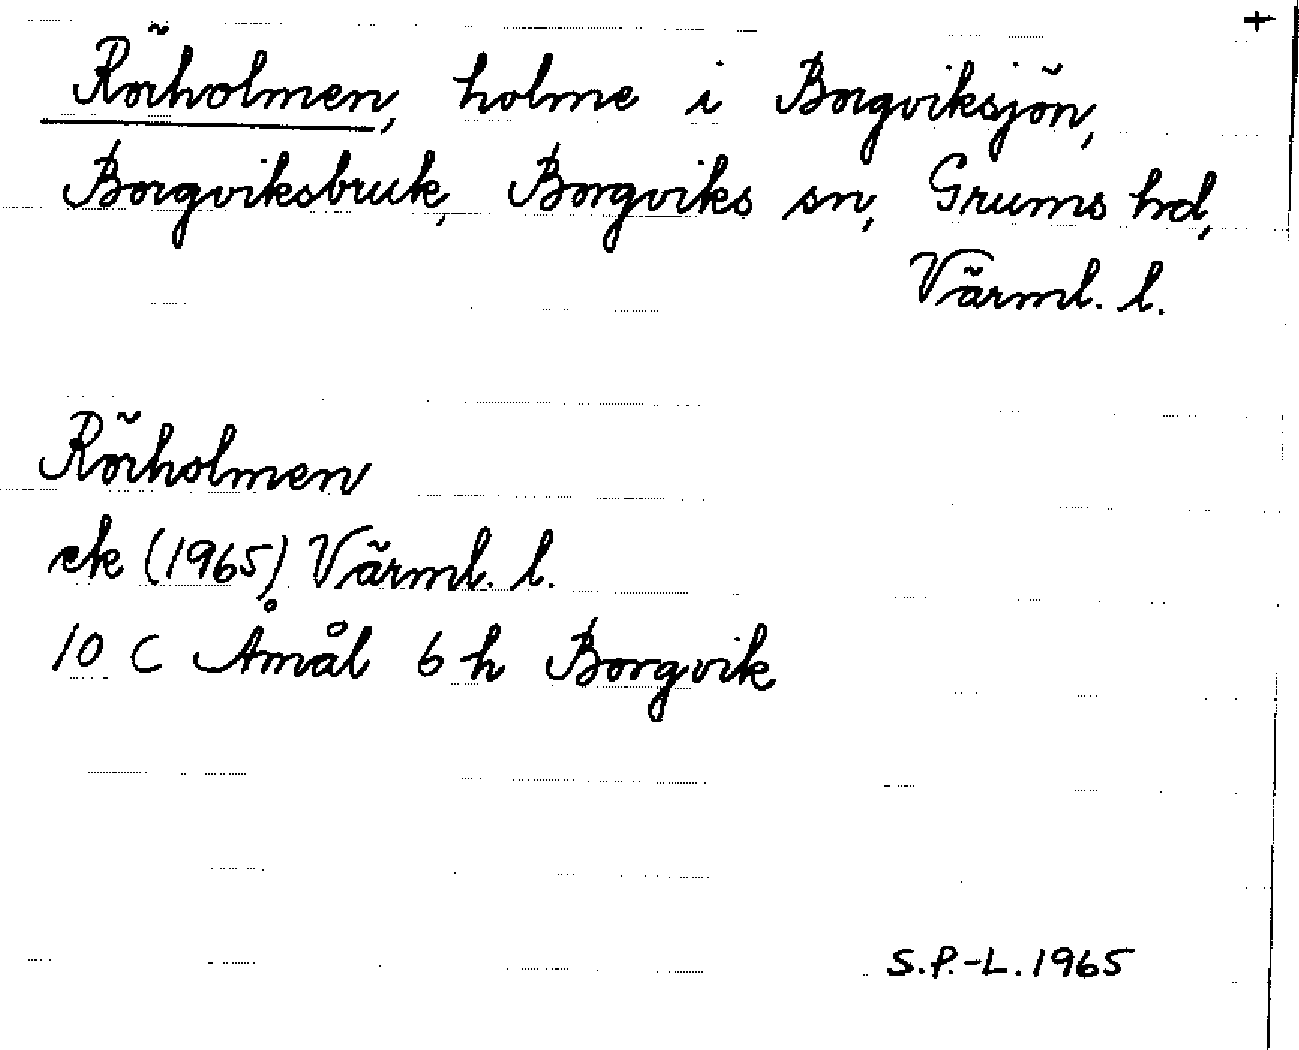 +
Rörholmen, holme i Borgviksjön,
Borgviksbruk, Borgviks sn, Grums hd,
Värml. l.
Rörholmen
ek (1965) Värml. l.
10 C Åmål 6 h Borgvik
S.P.-L. 1965